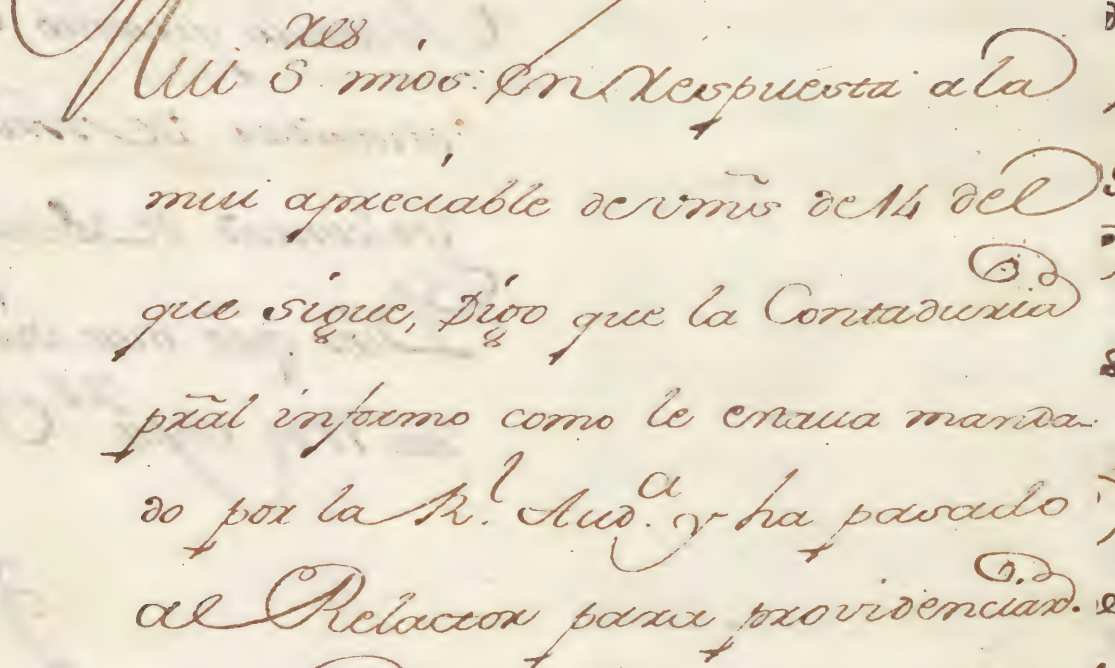 Mui S.res mios: En Respuesta a la
mui apreciable de vm̃s de 14 del
que sigue, Digo que la Contaduria
prãl informo como le estaua manda-
do por la R.l Aud.a y ha pasado
al Relactor para providenciar.